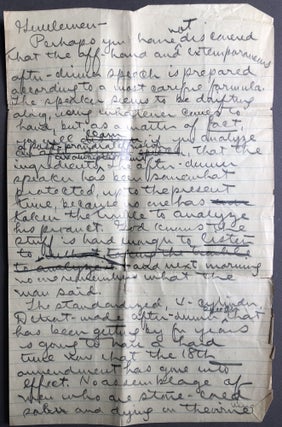 Gentlemen-
Perhaps you have not discovered
that the off hand and extemporaneous
after-dinner speech is prepared
according to a most careful formula.
The speaker seems to be drifting
along, using whatever comes to
hand, but, as a matter of fact,
learn
analyze
that the
ingredients of the after-dinner
speaker has been somewhat
protected, up to the present
time, because no one has
taken the trouble to analyze
his product. God knows the
stuff is hard enough to listen
to
to analyze and next morning
no one remembers what the
man said.
The standardized, 4-cylinder,
Detroit-made after-dinner speech that
has been getting by for years
is going to have a hard
time now that the 18th
amendment has gone into
effect. No assemblage of
men who are stone-cold
sober and dying on the vine